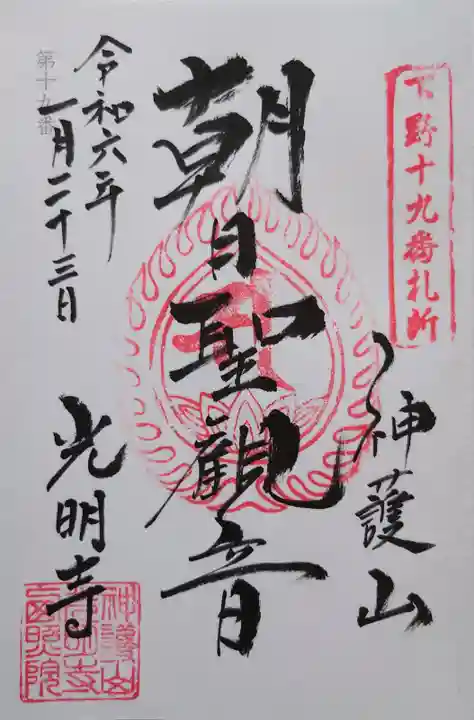 下野十九番札所
神護山
朝日聖観音
第十九番
令和六年
一月二十三日
光明寺